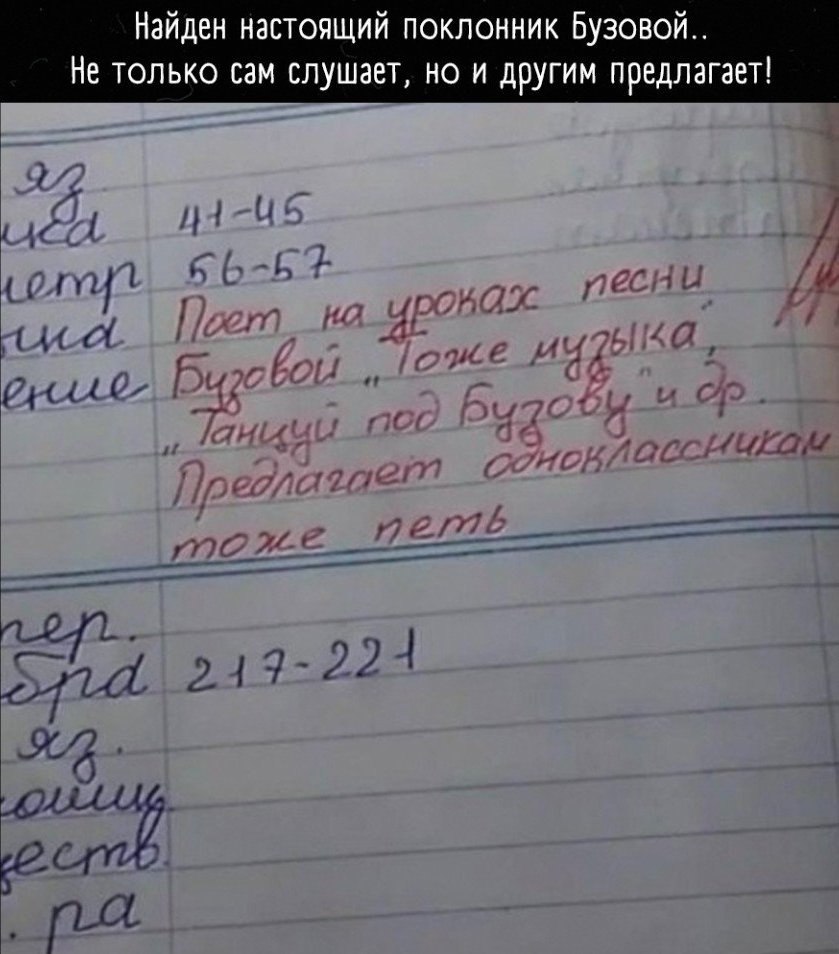 Найден настоящий поклонник Бузовой..
Не только сам слушает, но и другим предлагает!
яз
ика 41-45
метр 56-57
Поет на уроках песни
ение Бузовой „Тоже музыка",
„Танцуй под Бузову" и др.
Предлагает одноклассникам
тоже петь
пер.
бра 217-221
яз.
еств.
. ра